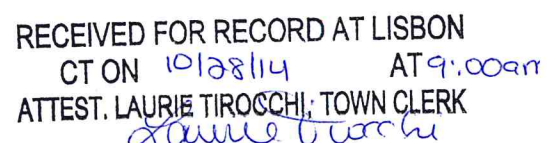 RECEIVED FOR RECORD AT LISBON
CT ON 10/28/14 AT 9:00am
ATTEST. LAURIE TIROCCHI, TOWN CLERK
Laurie Tirocchi